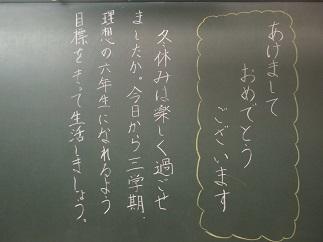 あけまして
おめでとう
ございます
冬休みは楽しく過ごせ
ましたか。今日から三学期。
理想の六年生になれるよう
目標をもって生活しましょう。